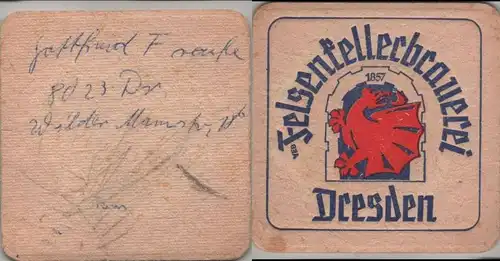 Gottfried Franke
8023 Dr
Wilder Mannstr. 18b
VEB Felsenkellerbrauerei
1857
Dresden